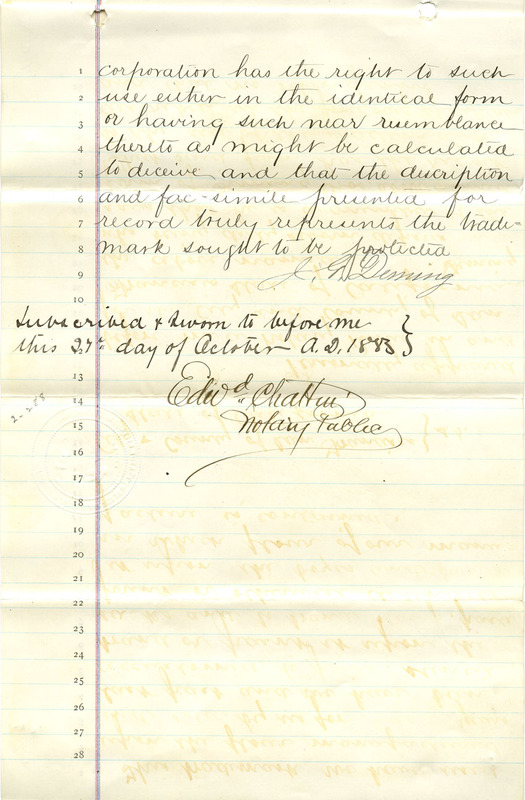 1 corporation has the right to such
2 use either in the identical form
3 or having such near resemblance
4 thereto as might be calculated
5 to deceive and that the discription
6 and fac-simile presented for
7 record truly represents the trade-
8 mark sought to be protected
9 J. Deming
10
Subscribed & Sworn to before me
this 27th day of October A.D. 1883
13
14 Edwd. Chattin
15 Notary Public
16
17
18
19
20
21
22
23
24
25
26
27
28